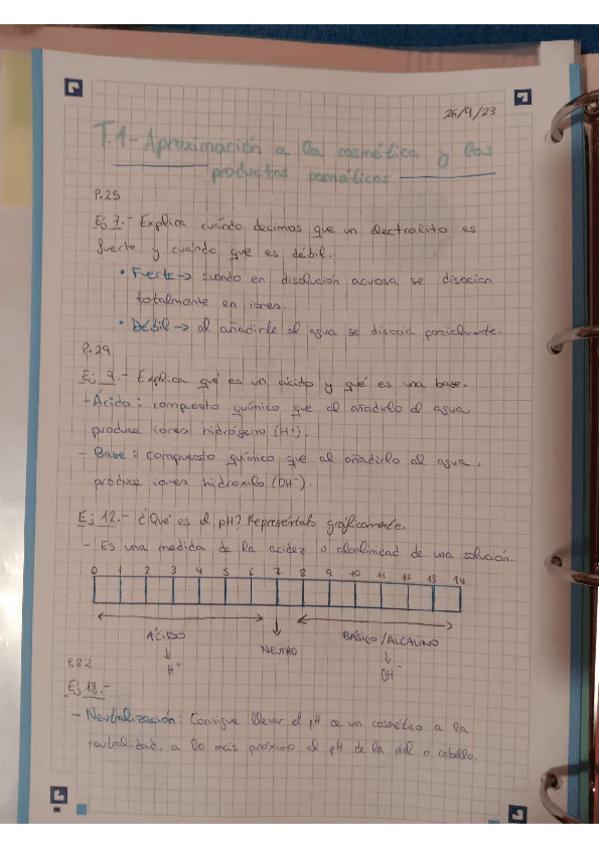 26/9/23
T.1- Aproximación a la cosmética y los
productos cosméticos
P.25
Ej 7.- Explica cuándo decimos que un electrolito es
fuerte y cuándo que es débil.
• Fuerte → cuando en disolución acuosa se disocian
totalmente en iones.
• Débil → al añadirle al agua se disocia parcialmente.
P.29
Ej 9.- Explica qué es un ácido y qué es una base.
- Ácido: compuesto químico que al añadirlo al agua
produce iones hidrógeno (H+).
- Base: compuesto químico que al añadirlo al agua,
produce iones hidroxilo (OH-).
Ej 12.- ¿Qué es el pH? Represéntalo gráficamente.
- Es una medida de la acidez o alcalinidad de una solución.
0 1 2 3 4 5 6 7 8 9 10 11 12 13 14
ÁCIDO NEUTRO BÁSICO/ALCALINO
↓ ↓
H+ OH-
Ej 18.-
- Neutralización: Consigue llevar el pH de un cosmético a la
neutralidad, a lo más próximo al pH de la piel o cabello.